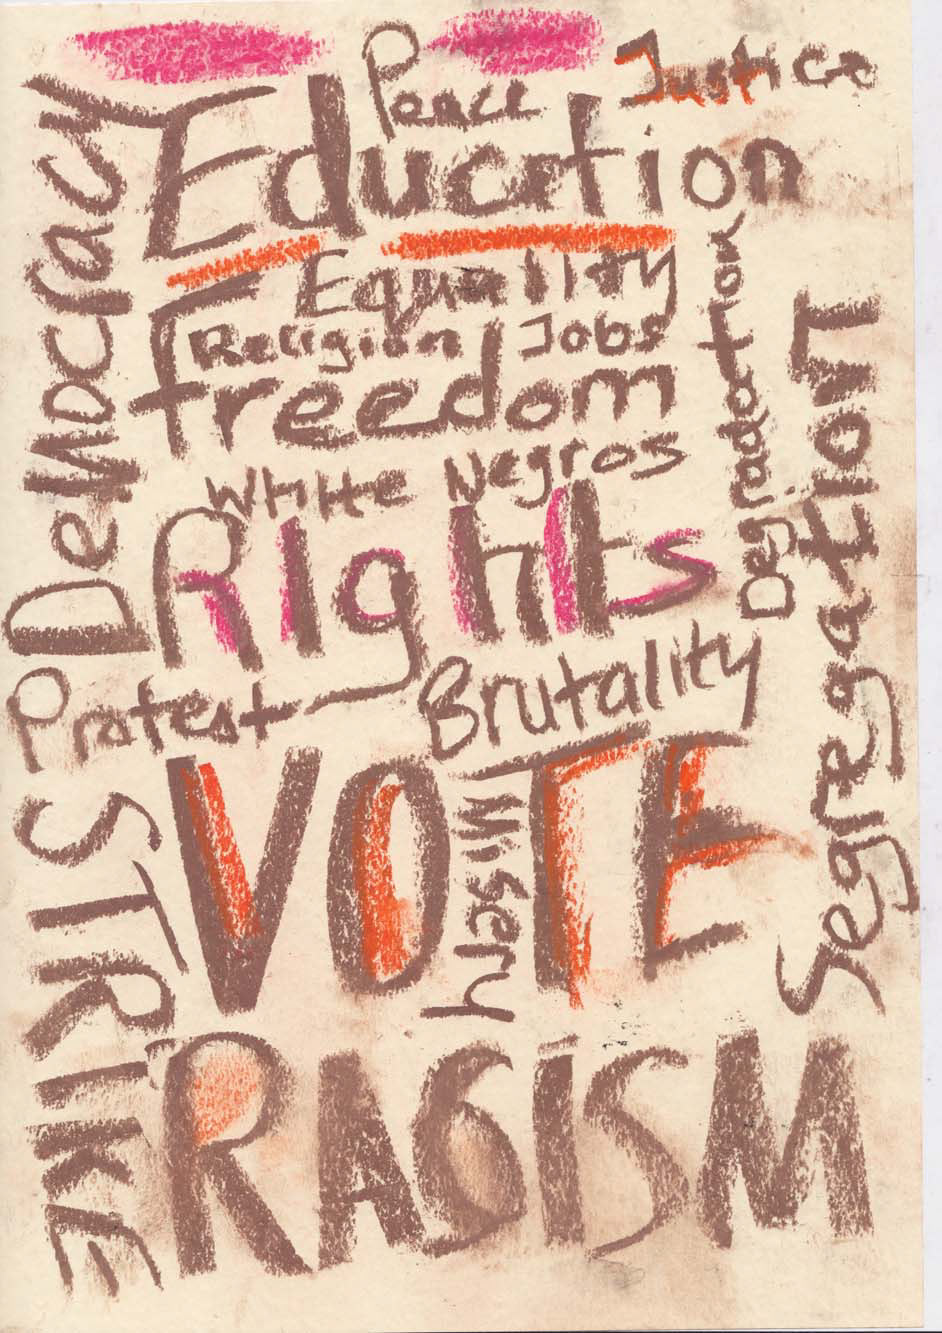 Peace Justice
Education
Equality
Religion Jobs
freedom
White Negros
Rights
Protest
Brutality
VOTE
Misery
RACISM
DeMocracy
STRIKE
Degradation
Segregation